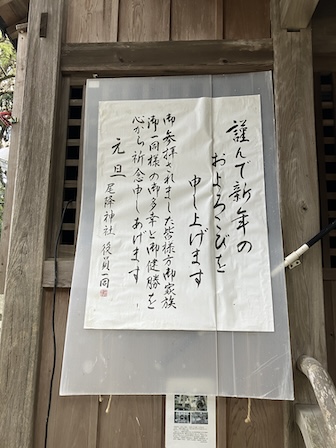 謹んで新年の
およろこびを
申し上げます
御参拝されました皆様方御家族
御一同様の御多幸と御健勝を
心から祈念申しあげます
元旦
尾降神社役員一同